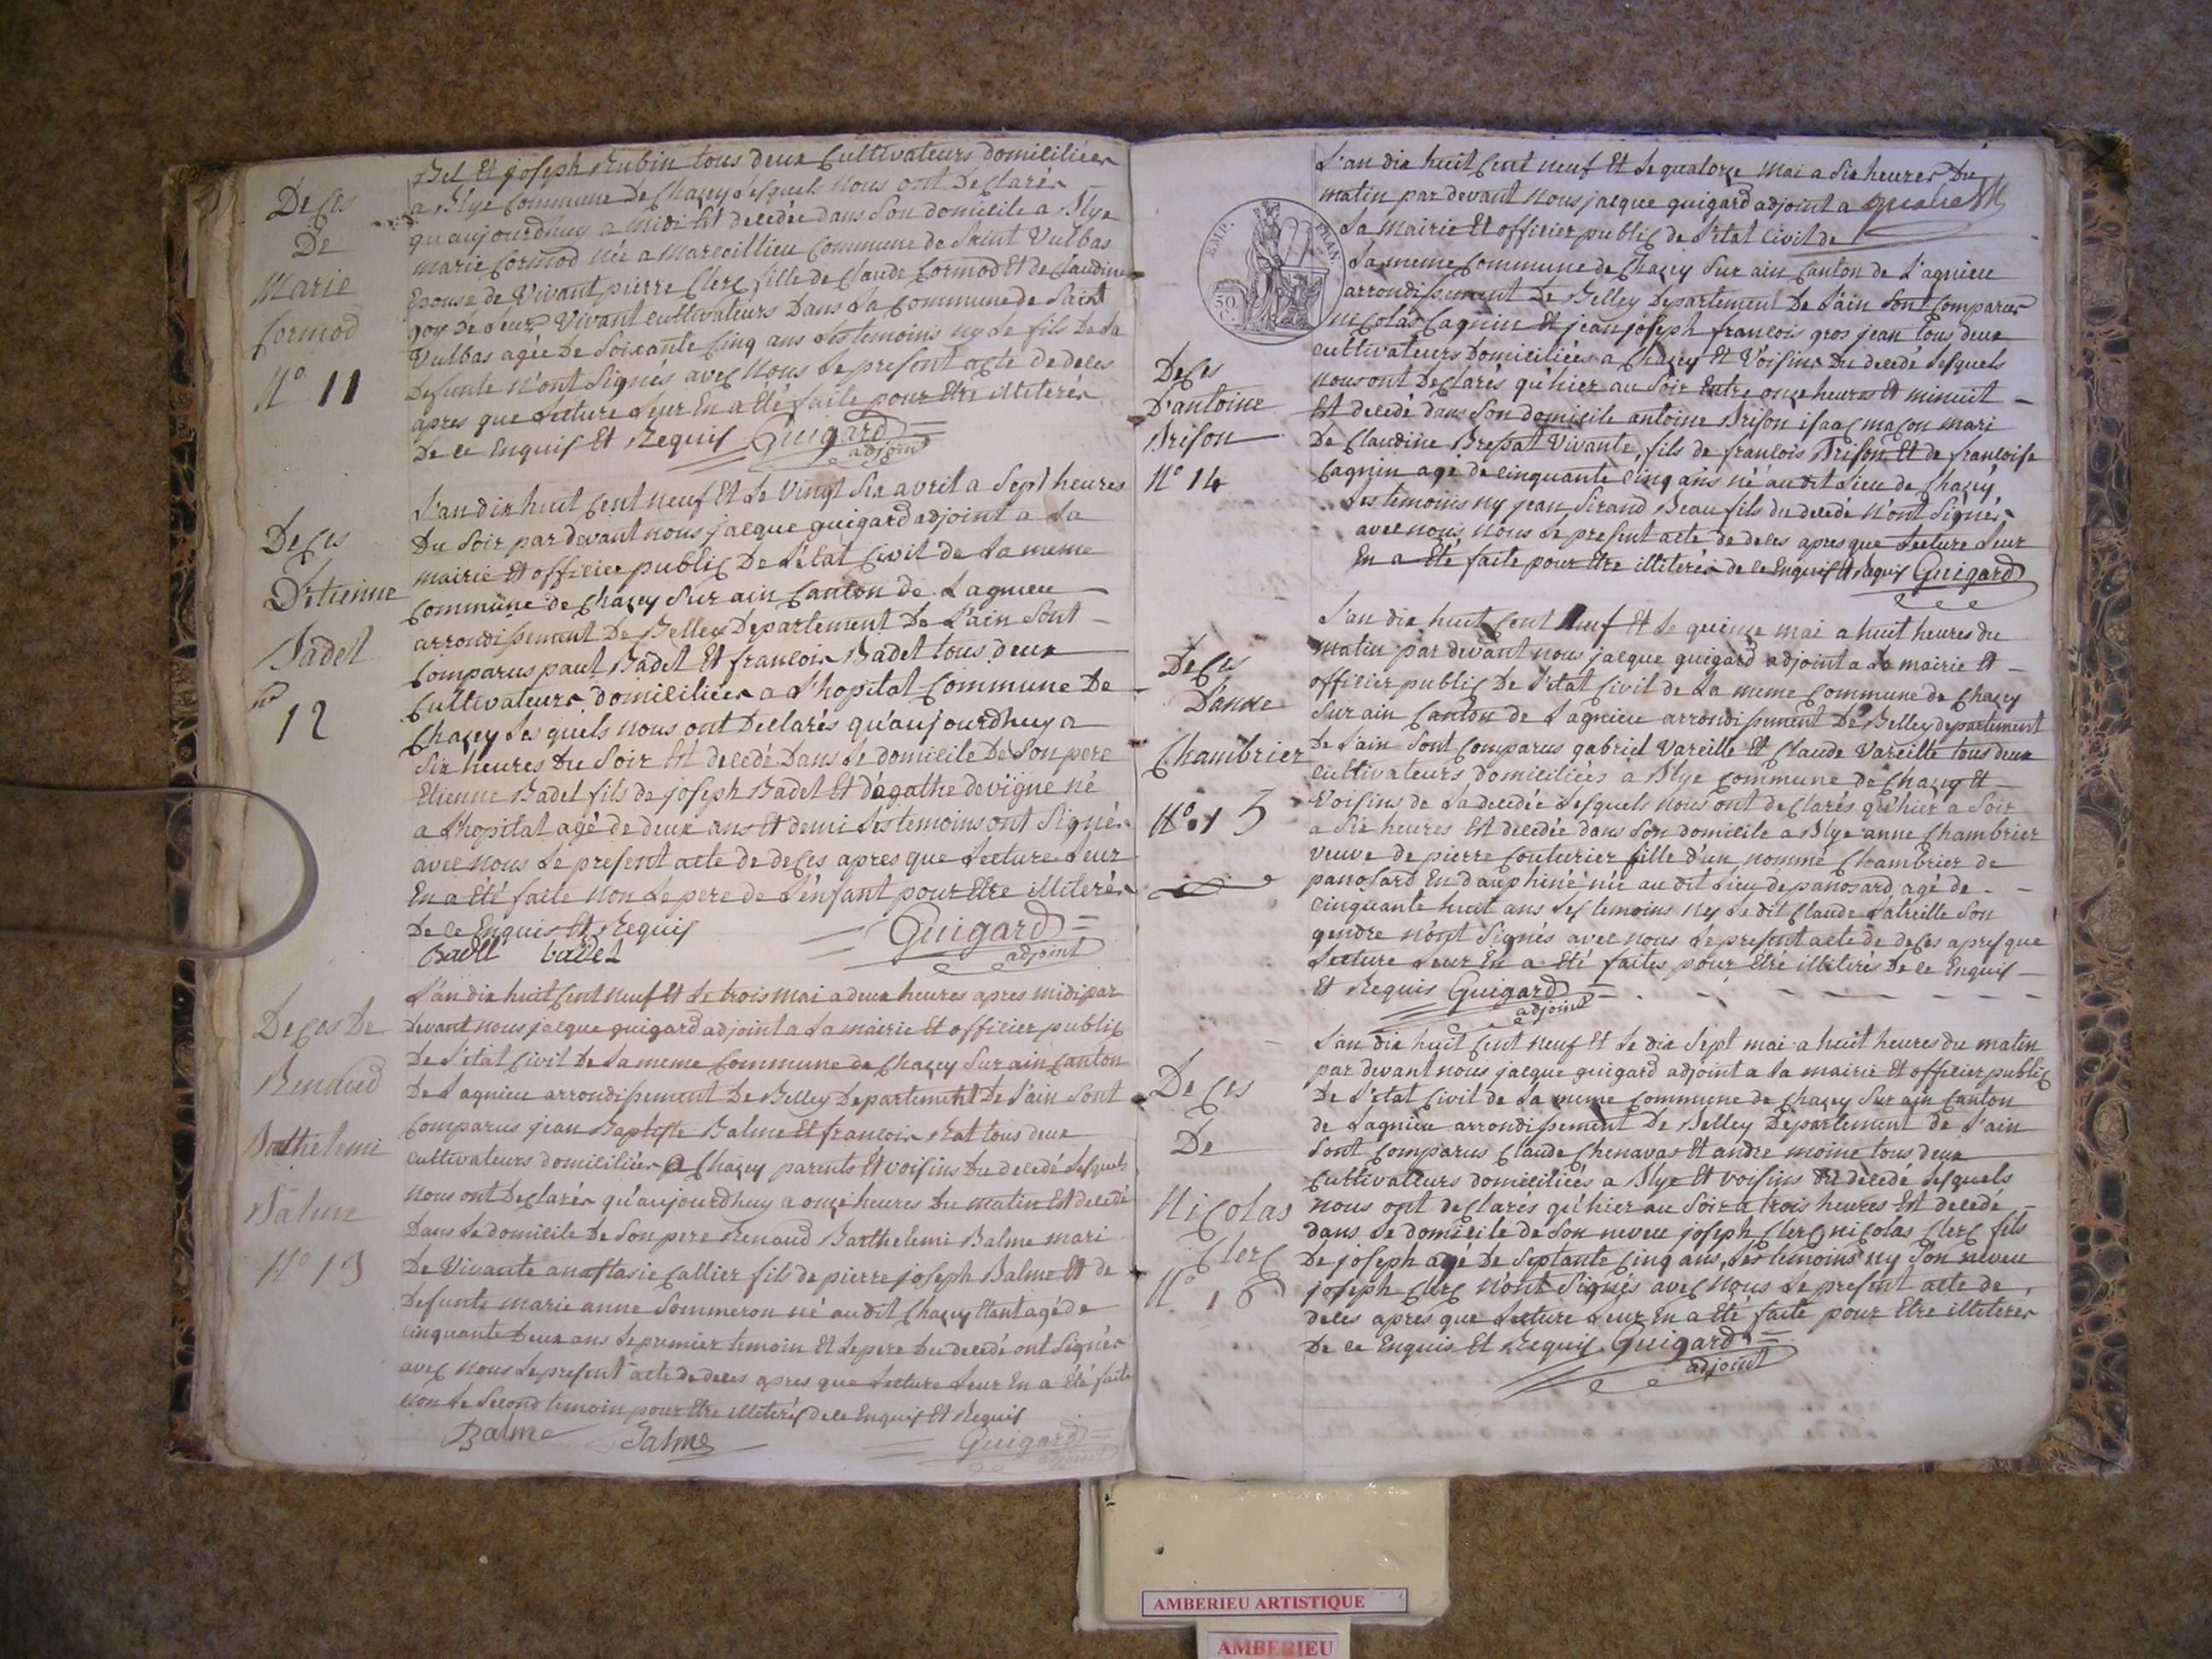 Deces
De
Marie
Cormod
N° 11
Bel Et joseph Rubin tous deux Cultivateurs domiciliées
a Blye Commune De Chazey Lesquels Nous ont Declarés
qu'aujourdhuy a midi Est decedée dans Son domicile a Blye
marie Cormod née a Marcillieu Commune de Saint Vulbas
Epouse de Vivant pierre Clerc fille de Claude Cormod Et de Claudine
goy De Leur Vivant cultivateurs Dans La Commune de Saint
Vulbas agée De Soixante Cinq ans Les temoins ny Le fils De La
Defunte N'ont Signés avec Nous Le present acte de deces
apres que Lecture Leur En a Eté faite pour Etre illiterés
De ce Enquis Et Requis Guigard
adjoint
Deces
D'etienne
Badet
n°
12
L'an dix huit Cent neuf Et Le Vingt Six avril a Sept heures
Du Soir par devant nous jacque guigard adjoint a La
mairie Et officier public De L'état Civil de La meme
Commune de Chazey Sur ain Canton de Lagnieu
arrondissement De Belley Departement De L'ain Sont
Comparus paul Badet Et francois Badet tous deux
Cultivateurs domiciliées a L'hopital Commune De
Chazey Les quels nous ont Declarés qu'aujourdhuy a
Six heures Du Soir Est decedé Dans Le domicile De Son pere
Etienne Badet fils de joseph Badet Et d'agathe devigne né
a L'hopital agé de deux ans Et demi Les temoins ont Signés
avec nous Le present acte de deces apres que Lecture Leur
En a Eté faite non Le pere de L'enfant pour Etre illiterés
De ce Enquis Et Requis
Guigard
adjoint
Badet badet
Deces De
Renaud
Barthelemi
Balme
N° 13
L'an dix huit Cent neuf Et Le trois mai a deux heures apres midi par
Devant nous jacque guigard adjoint a La mairie Et officier public
De L'état Civil De La meme Commune de Chazey Sur ain Canton
De Lagnieu arrondissement De Belley Departement De L'ain Sont
Comparus jean Baptiste Balme Et francois Rat tous deux
cultivateurs domiciliées a Chazey parents Et voisins Du decedé Lesquels
Nous ont Declarés qu'aujourdhuy a onze heures Du matin Est decedé
Dans Le domicile De Son pere Renaud Barthelemi Balme mari
De Vivante anastasie Callier fils de pierre joseph Balme Et de
Defunte marie anne Sommeron né audit Chazey Etant agé de
cinquante Deux ans Le premier temoin Et Le pere Du decedé ont Signés
avec nous Le present acte de deces apres que Lecture Leur En a Eté faite
Non Le Second temoin pour Etre illiterés de ce Enquis Et Requis
Balme Balme
Guigard
adjoint
EMP. FRAN.
50
C.
Deces
D'antoine
Brison
N° 14
L'an dix huit Cent neuf Et Le quatorze mai a Six heures Du
matin par devant Nous jacque guigard adjoint a
La mairie Et officier public de L'etat Civil de
La meme Commune de Chazey Sur ain Canton de Lagnieu
arrondissement De Belley Departement De L'ain Sont Comparus
nicolas Cagnin Et jean joseph francois gros jean tous deux
cultivateurs Domiciliées a Chazey Et Voisins Du decedé Lesquels
Nous ont Declarés qu'hier au Soir Entre onze heures Et minuit
Est decedé dans Son domicile antoine Brison isaac macon mari
De Claudine Bressat Vivante, fils de francois Brison Et de francoise
Cagnin agé de cinquante Cinq ans né au dit Lieu de Chazey
Les temoins ny jean Sirand Beau fils du decedé N'ont Signés
avec nous, Nous Le present acte de deces apres que Lecture Leur
En a Eté faite pour Etre illiterés de ce Enquis Et Requis Guigard
Deces
D'anne
Chambrier
N° 15
L'an dix huit Cent Neuf Et Le quinze mai a huit heures du
matin par devant nous jacque guigard adjoint a La mairie Et
officier public De L'etat Civil de La meme Commune de Chazey
Sur ain Canton de Lagnieu arrondissement De Belley departement
De L'ain Sont Comparus gabriel Vareille Et Claude Vareille tous deux
Cultivateurs domiciliées a Blye Commune de Chazey Et
Voisins de La decedée Lesquels Nous ont declarés qu'hier a Soir
a Six heures Est decedée dans Son domicile a Blye anne Chambrier
veuve de pierre Couturier fille d'un nommé Chambrier de
panosard En dauphiné née au dit Lieu de panosard agé de
cinquante huit ans Les temoins ny Le dit Claude Latreille Son
gendre n'ont Signés avec nous Le present acte de deces apres que
Lecture Leur En a Eté faites pour Etre illiterés De ce Enquis
Et Requis Guigard
adjoint
Deces
De
Nicolas
Clerc
N° 16
L'an dix huit Cent neuf Et Le dix Sept mai a huit heures du matin
par devant nous jacque guigard adjoint a La mairie Et officier public
De L'etat Civil de La meme Commune de Chazey Sur ain Canton
de Lagnieu arrondissement De Belley Departement de L'ain
Sont Comparus Claude Chenavas Et andre moine tous deux
Cultivateurs domiciliées a Blye Et voisins du decedé Lesquels
nous ont declarés qu'hier au Soir a trois heures Est decedé
dans Le domicile de Son neveu joseph Clerc nicolas Clerc fils
De joseph agé De Septante Cinq ans, Les temoins ny Son neveu
joseph Clerc N'ont Signés avec Nous Le present acte de
deces apres que Lecture Leur En a Eté faite pour Etre illiterés
De ce Enquis Et Requis Guigard
adjoint
AMBERIEU ARTISTIQUE
AMBERIEU